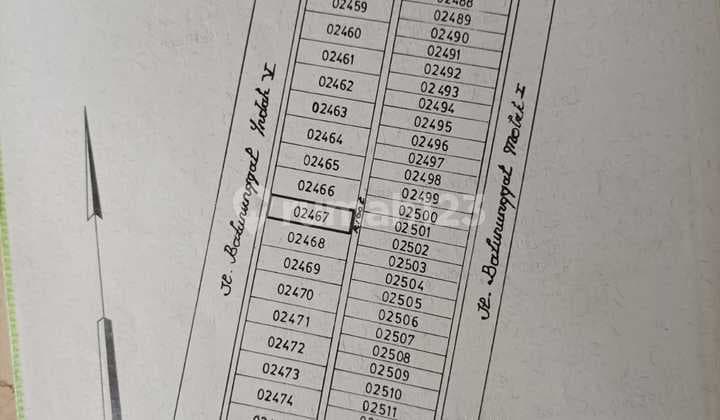 02459
02460
02461
02462
02463
02464
02465
02466
02467
02468
02469
02470
02471
02472
02473
02474
02488
02489
02490
02491
02492
02493
02494
02495
02496
02497
02498
02499
02500
02501
02502
02503
02504
02505
02506
02507
02508
02509
02510
02511
Jl. Batununggal Indah V
Jl. Batununggal Molek I
rumah123